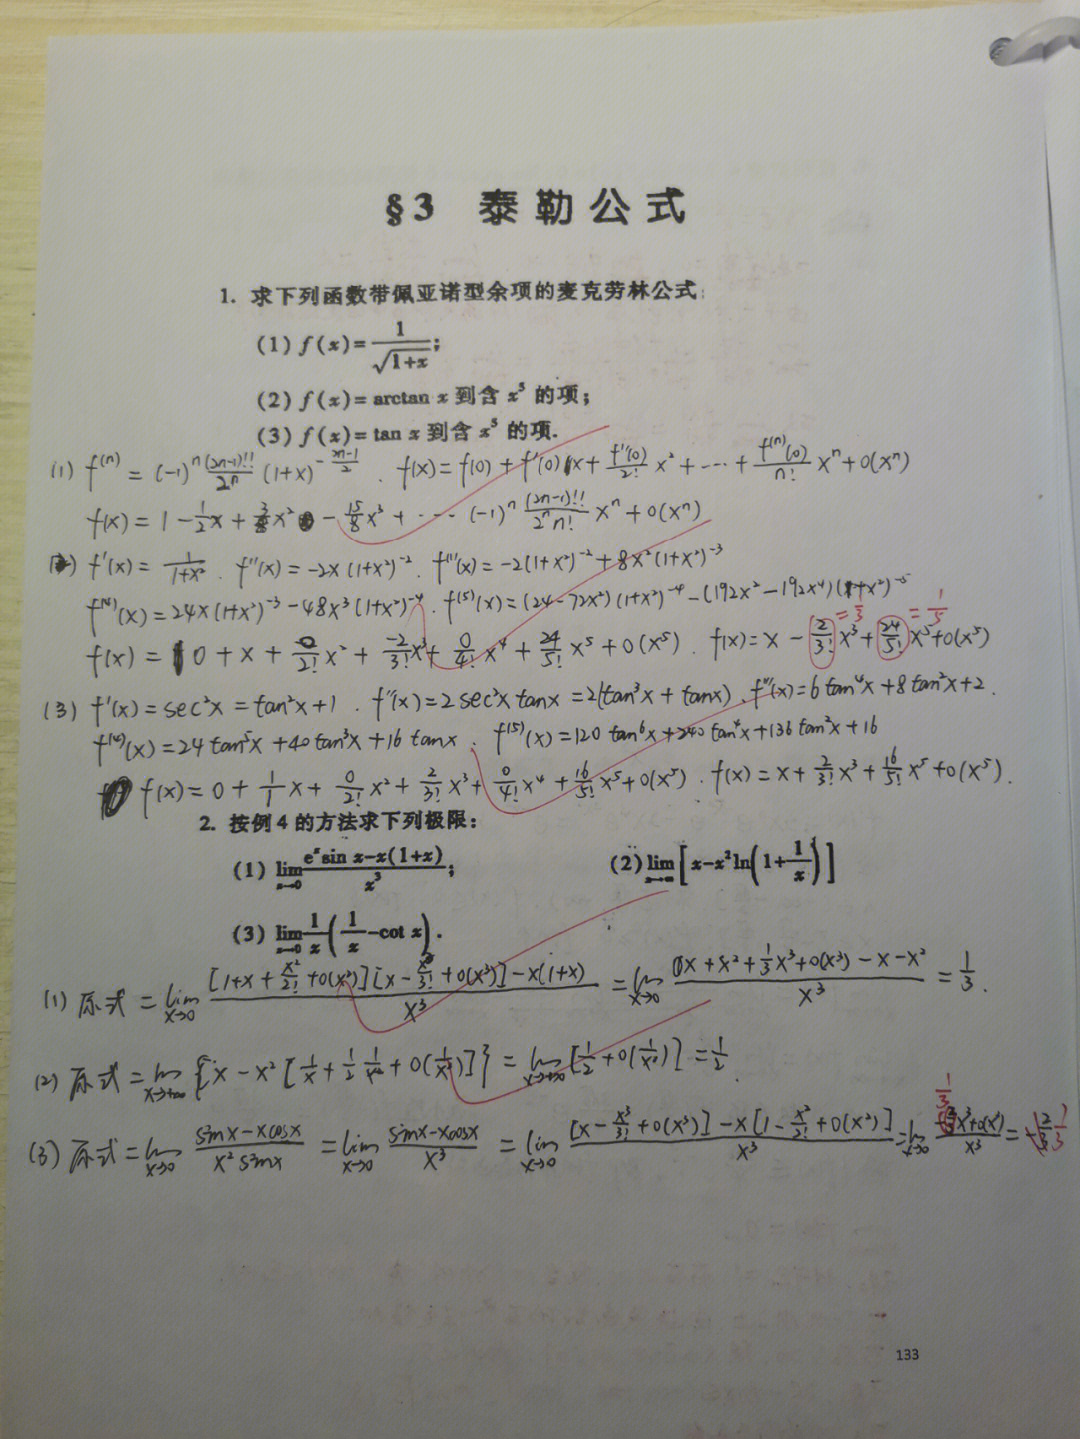 §3 泰勒公式
1. 求下列函数带佩亚诺型余项的麦克劳林公式:
(1) f(x)=1/√(1+x);
(2) f(x)=arctan x 到含 x⁵ 的项;
(3) f(x)=tan x 到含 x⁵ 的项.
(1) f⁽ⁿ⁾ = (-1)ⁿ (2n-1)!!/2ⁿ (1+x)^(-(2n-1)/2). f(x)=f(0)+f'(0)x+f''(0)/2! x²+⋯+f⁽ⁿ⁾(0)/n! xⁿ+o(xⁿ)
f(x)=1-1/2 x+3/8 x² - 15/8 x³+⋯ (-1)ⁿ (2n-1)!!/(2ⁿ n!) xⁿ+o(xⁿ)
(2) f'(x)=1/(1+x²). f''(x)=-2x(1+x²)⁻². f'''(x)=-2(1+x²)⁻²+8x²(1+x²)⁻³
f⁽⁴⁾(x)=24x(1+x²)⁻³-48x³(1+x²)⁻⁴. f⁽⁵⁾(x)=(24-72x²)(1+x²)⁻⁴-(192x²-192x⁴)(1+x²)⁻⁵
=1/3 =1/5
f(x)=0+x+0/2! x²+-2/3! x³+0/4! x⁴+24/5! x⁵+o(x⁵). f(x)=x-2/3! x³+24/5! x⁵+o(x⁵)
(3) f'(x)=sec²x=tan²x+1. f''(x)=2sec²x tanx=2(tan³x+tanx). f'''(x)=6tan⁴x+8tan²x+2.
f⁽⁴⁾(x)=24tan⁵x+40tan³x+16tanx. f⁽⁵⁾(x)=120tan⁶x+240tan⁴x+136tan²x+16
f(x)=0+1/1 x+0/2! x²+2/3! x³+0/4! x⁴+16/5! x⁵+o(x⁵). f(x)=x+2/3! x³+16/5! x⁵+o(x⁵).
2. 按例4的方法求下列极限:
(1) lim x→0 (eˣ sin x-x(1+x))/x³; (2) lim x→∞ [x-x²ln(1+1/x)]
(3) lim x→0 1/x(1/x-cot x).
(1) 原式=lim x→0 ([1+x+x²/2!+o(x²)][x-x³/3!+o(x³)]-x(1+x))/x³ =lim x→0 (x+x²+1/3 x³+o(x³)-x-x²)/x³ =1/3.
(2) 原式=lim x→+∞ {x-x²[1/x+1/2 1/x²+o(1/x²)]}=lim x→+∞ [1/2+o(1/x²)]=1/2.
(3) 原式=lim x→0 (sinx-xcosx)/(x² sinx) =lim x→0 (sinx-xcosx)/x³ =lim x→0 ([x-x³/3!+o(x³)]-x[1-x²/2!+o(x²)])/x³ =lim x→0 (1/3 x³+o(x³))/x³ = 1/3
133